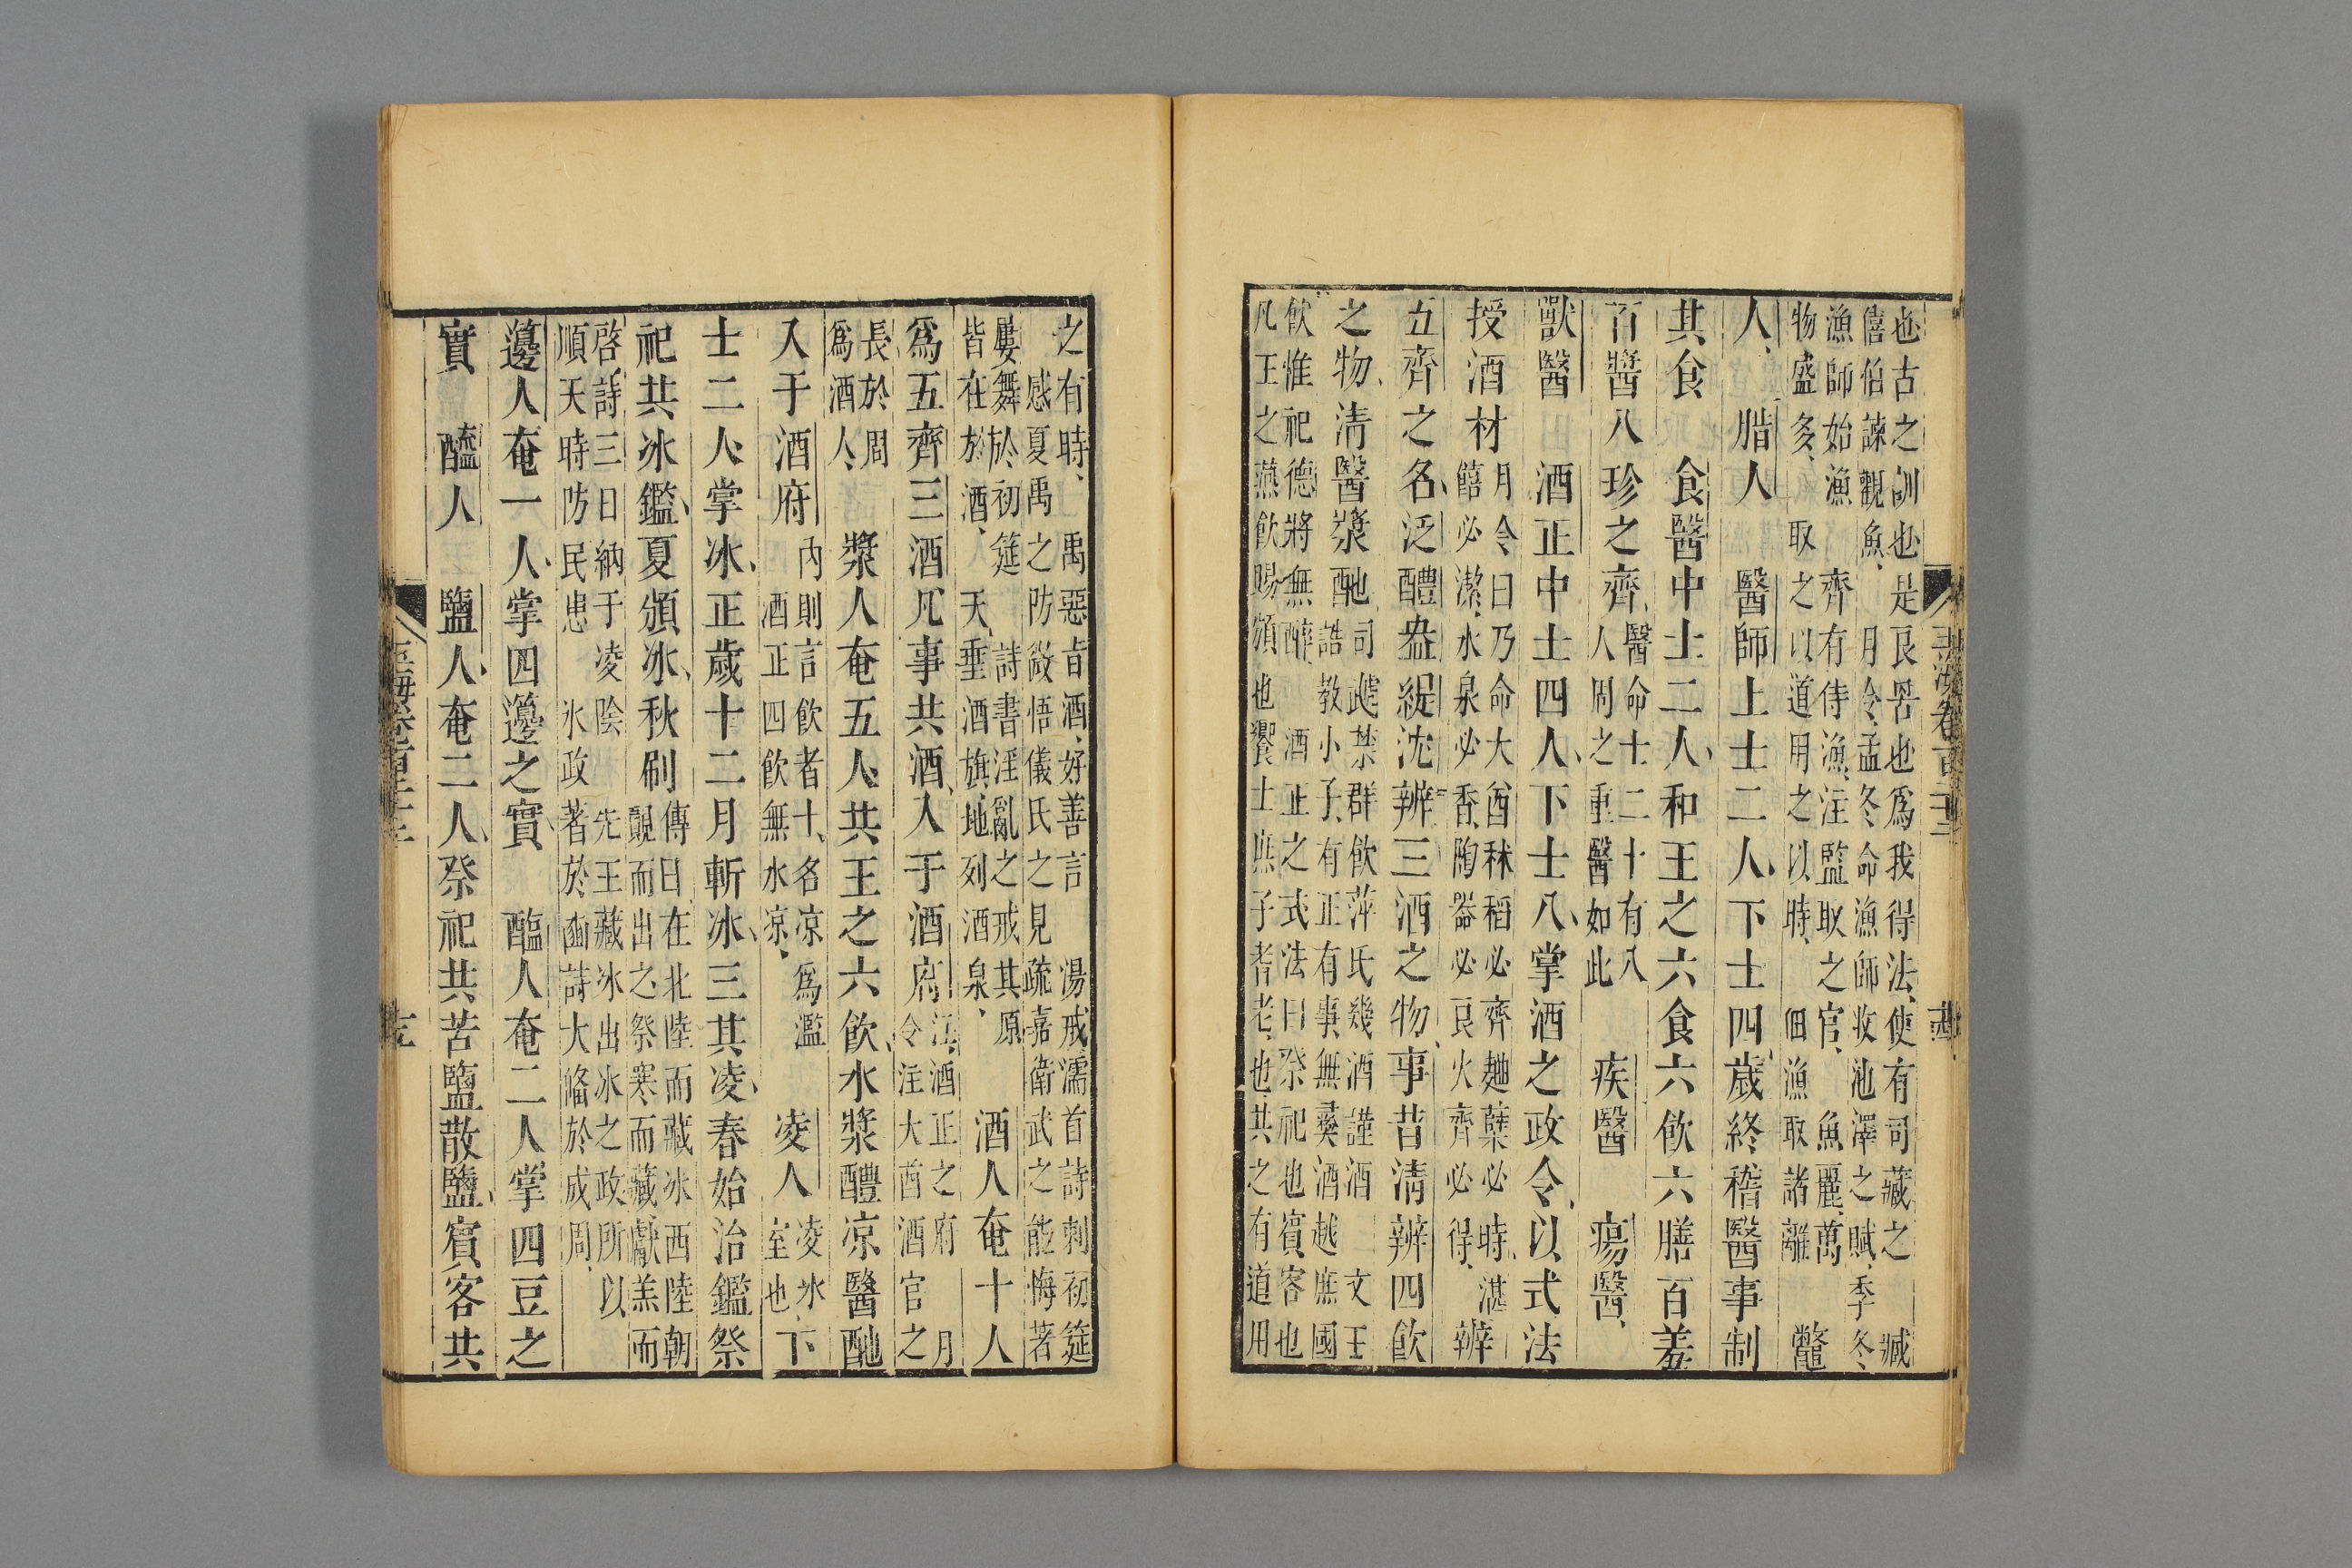 也古之訓也是良罟也爲我得法使有司藏之　臧
僖伯諫觀魚　月令孟冬命漁師收池澤之賦季冬
漁師始漁　齊有侍漁注監取之官　魚麗萬
物盛多　取之以道用之以時　佃漁取諸離
鼈
人　腊人　醫師上士二人下士四歲終稽醫事制
其食　食醫中士二人和王之六食六飲六膳百羞
百醬八珍之齊
醫命士二十有八
人周之重醫如此
疾醫　瘍醫
獸醫　酒正中士四人下士八掌酒之政令以式法
授酒材
月令曰乃命大酋秫稻必齊麯糵必時湛
饎必潔水泉必香陶器必良火齊必得
辨
五齊之名泛醴盎緹沈辨三酒之物事昔淸辨四飲
之物淸醫漿酏
司虣禁群飲萍氏幾酒謹酒　文王
誥教小子有正有事無彝酒越庶國
飲惟祀德將無醉　酒正之式法曰祭祀也賓客也
凡王之燕飲賜頒也饗士庶子耆老也共之有道用
之有時　禹惡旨酒好善言　湯戒濡首詩刺初筵
感夏禹之防微悟儀氏之見疏嘉衛武之能悔著
屢舞於初筵　詩書淫亂之戒其原
皆在於酒　天垂酒旗地列酒泉
酒人奄十人
爲五齊三酒凡事共酒入于酒府
江酒正之府　月
令注大酋酒官之
長於周
爲酒人
漿人奄五人共王之六飲水漿醴凉醫酏
入于酒府
內則言飲者十名凉爲濫
酒正四飲無水凉
凌人
凌冰
室也
下
士二人掌冰正歲十二月斬冰三其凌春始治鑑祭
祀共冰鑑夏頒冰秋刷
傳曰在北陸而藏冰西陸朝
覿而出之祭寒而藏獻羔而
啓詩三日納于凌陰　先王藏冰出冰之政所以
順天時防民患　冰政著於豳詩大備於成周
籩人奄一人掌四籩之實　醢人奄二人掌四豆之
實　醯人　鹽人奄二人祭祀共苦鹽散鹽賓客共